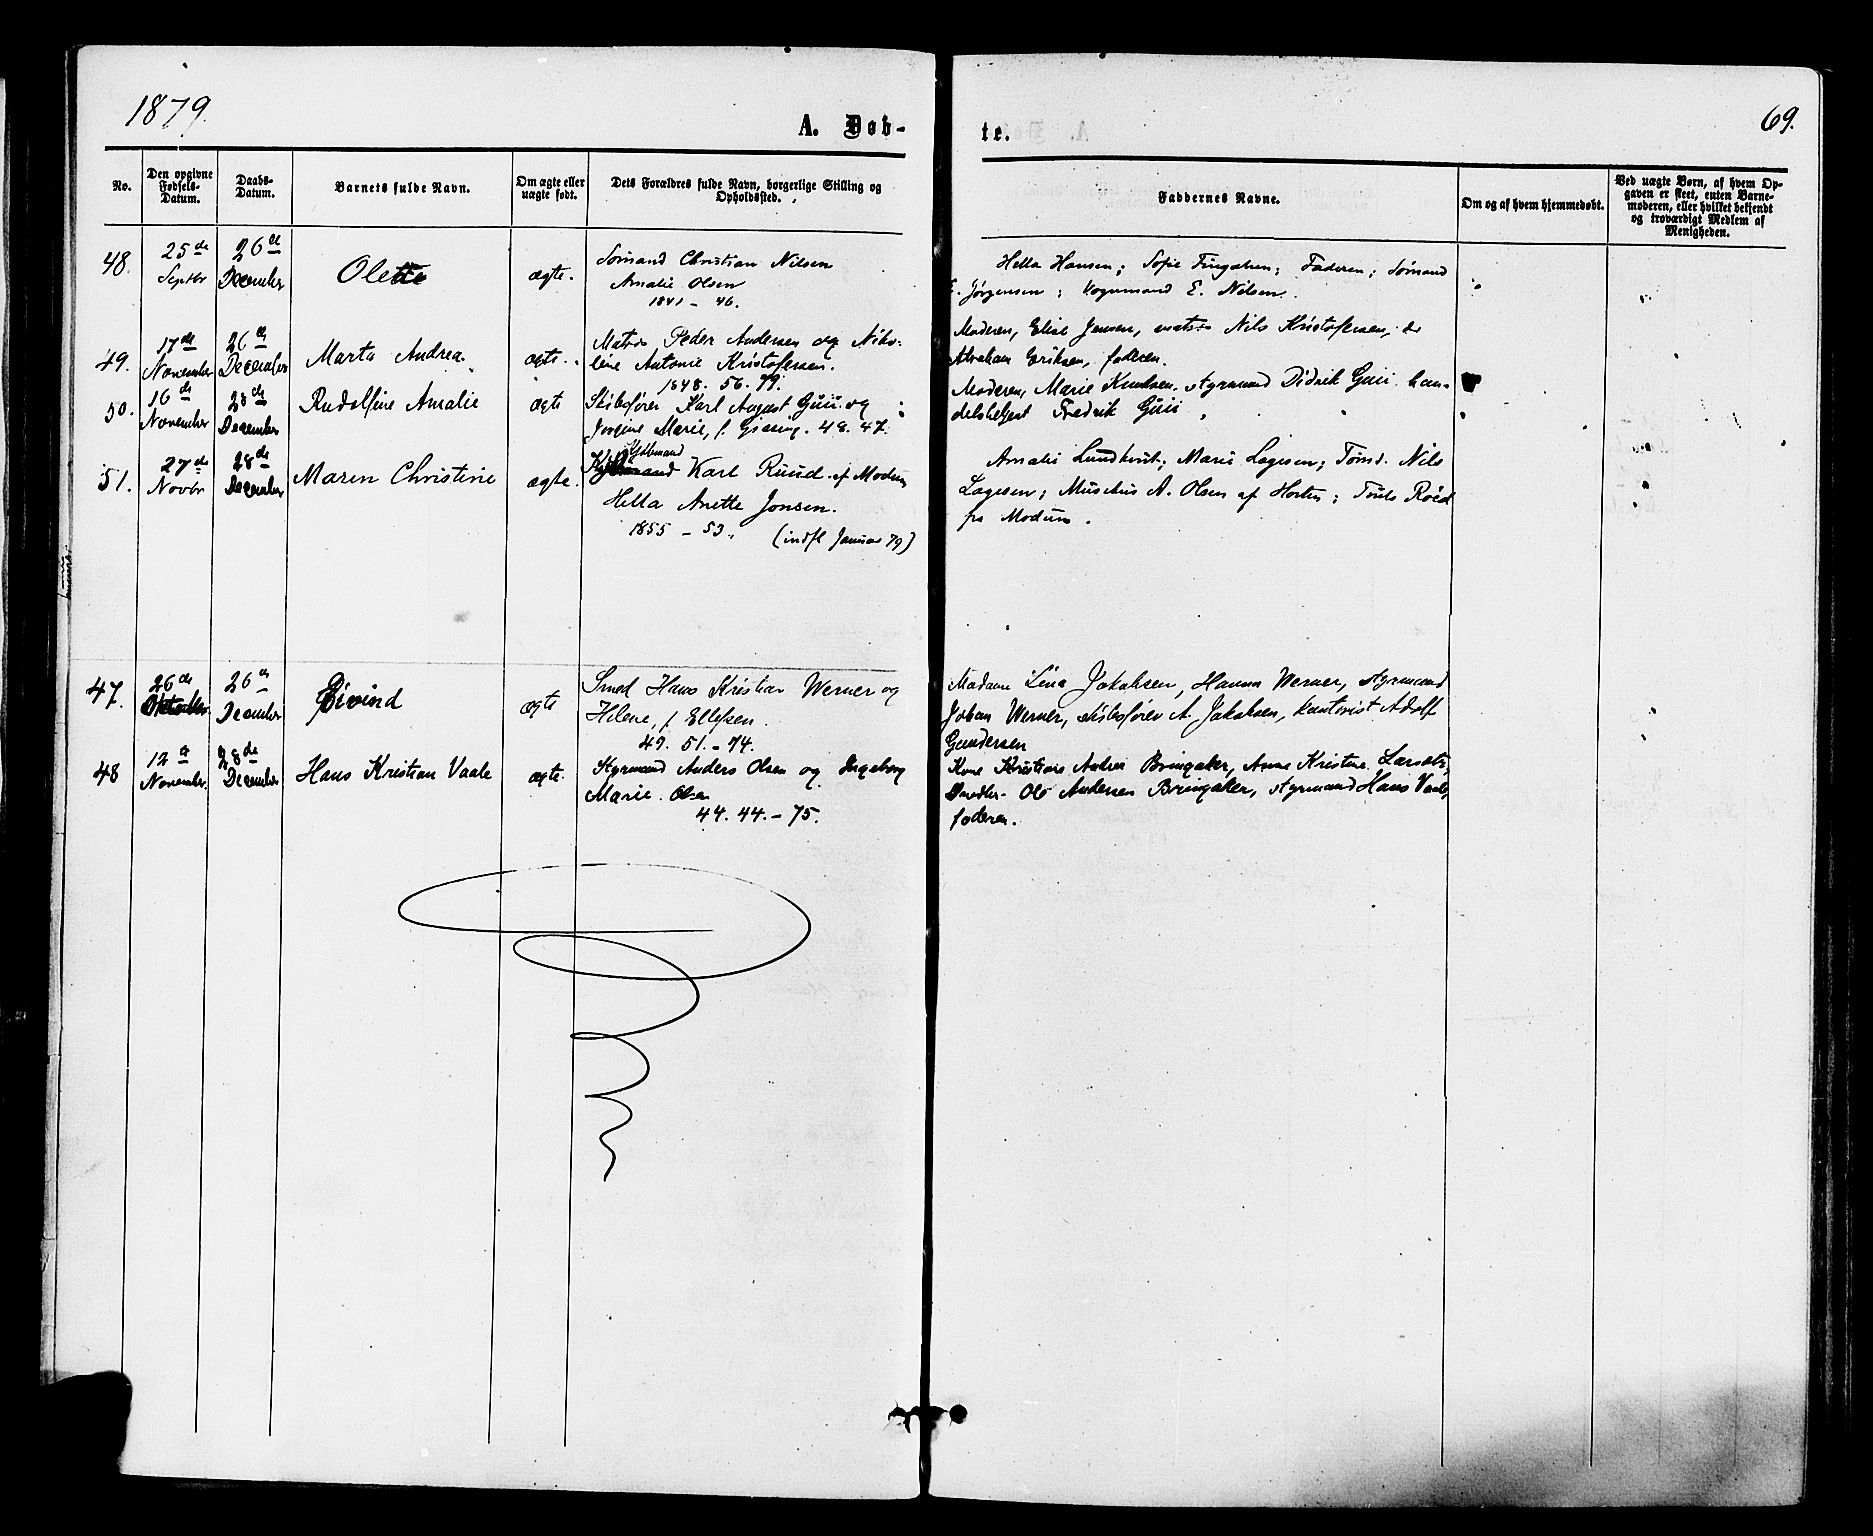 1879.
A. Døb-
te.
69.
No.
Den opgivne Fødsels-Datum.
Daabs-Datum.
Barnets fulde Navn.
Om ægte eller uægte født.
Dets Forældres fulde Navn, borgerlige Stilling og Opholdssted.
Faddernes Navne.
Om og af hvem hjemmedøbt.
Ved uægte Børn, af hvem Opgaven er skeet, enten Barnemoderen, eller hvilket bekjendt og troværdigt Medlem af Menigheden.
48.
25de Septbr
26de December
Olette
ægte.
Sømand Christian Nilsen
Amalie Olsen
1841 - 46.
Hella Hansen; Sofie Tingulsen; Faderen; Sømand
E. Jørgensen; Vognmand E. Nilsen.
49.
17de November
26de December
Marta Andrea.
ægte.
Matros Peder Andersen og Niko-
leine Antonie Kristofersen.
1848. 56. 79.
Moderen, Elise Jensen, matros Nils Kristofersen, do
Abraham Eriksen, faderen.
50.
16de November
28de December
Rudolfine Amalie
ægte
Skibsfører Karl August Guii og
Jørgine Marie, f. Giæsing. 48. 47.
Moderen, Marie Knudsen, styrmand Didrik Guii, han-
delsbetjent Fredrik Guii
51.
27de Novbr
28de December
Maren Christine
ægte.
Karl Ruud af Modum
Hella Anette Jonsen.
1855 - 53.
(indfl Januar 79)
Amalie Lundkvist; Marie Lagesen; Tømd. Nils
Lagesen; Musikus A. Olsen af Horten; Truls Röed
fra Modum.
47.
26de Oktober
26de December
Øivind
ægte
Smed Hans Kristian Werner og
Helene, f Ellefsen.
49. 51. - 74.
Madam Lina Jakobsen, Hanna Werner, styrmand
Johan Werner, skibsfører A. Jakobsen, kontorist Adolf
Gundersen
48
12te November
28de December
Hans Kristian Vaale
ægte.
Styrmand Anders Olsen og Ingeborg
Marie Olsen
44. 44. - 75.
Kone Kristiane Andrea Bringaker, Anne Kristine Larsen,
Ole Andersen Bringaker, styrmand Hans Vaale,
faderen.